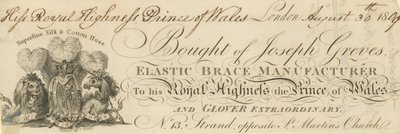 His Royal Highness Prince of Wales London August 30th
Superfine Silk & Cotton Hose
Bought of Joseph Groves,
ELASTIC BRACE MANUFACTURER
To his Royal Highness the Prince of Wales
AND GLOVER EXTRAORDINARY.
No. 13, Strand, opposite St. Martins Church,